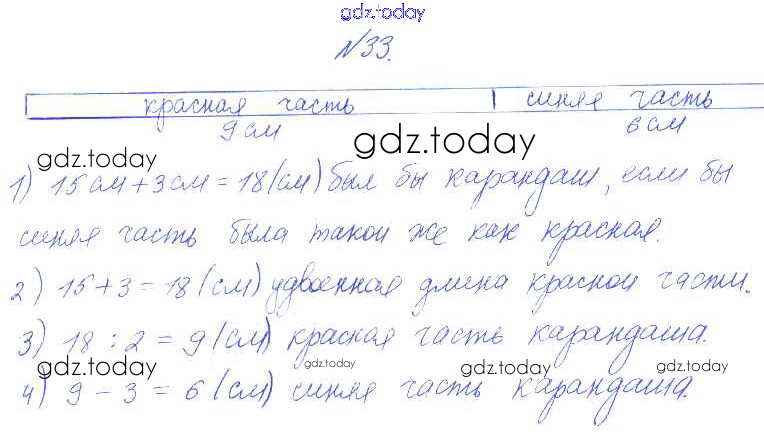 gdz.today
№33.
красная часть синяя часть
9 см 6 см
gdz.today gdz.today
1) 15 см + 3 см = 18 (см) был бы карандаш, если бы
синяя часть была такой же как красная.
2) 15 + 3 = 18 (см) удвоенная длина красной части.
3) 18 : 2 = 9 (см) красная часть карандаша.
gdz.today gdz.today gdz.today
4) 9 – 3 = 6 (см) синяя часть карандаша.